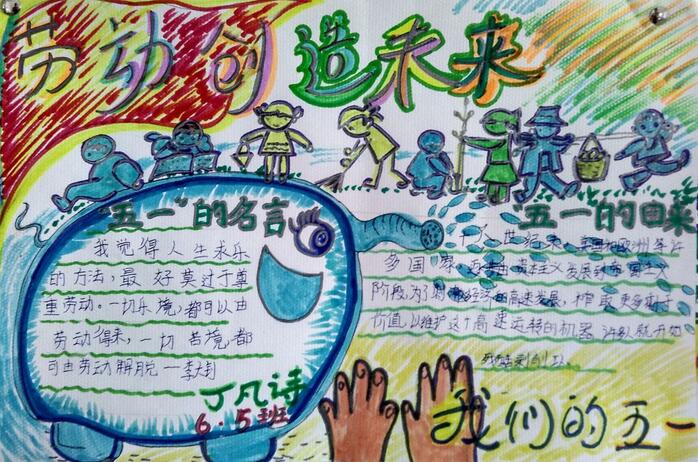 劳动创造未来
"五一"的名言
我觉得人生求乐
的方法，最好莫过于尊
重劳动。一切乐境，都可以由
劳动得来，一切苦境都
可由劳动解脱 —李大钊
丁凡诗
6.5班
五一的由来
十八世纪末，美国和欧洲等许
多国家，资本主义发展到帝国主义
阶段，为了刺激经济的高速发展，榨取更多剩余
价值，以维护这个高速运转的机器
残酷剥削
我们的五一